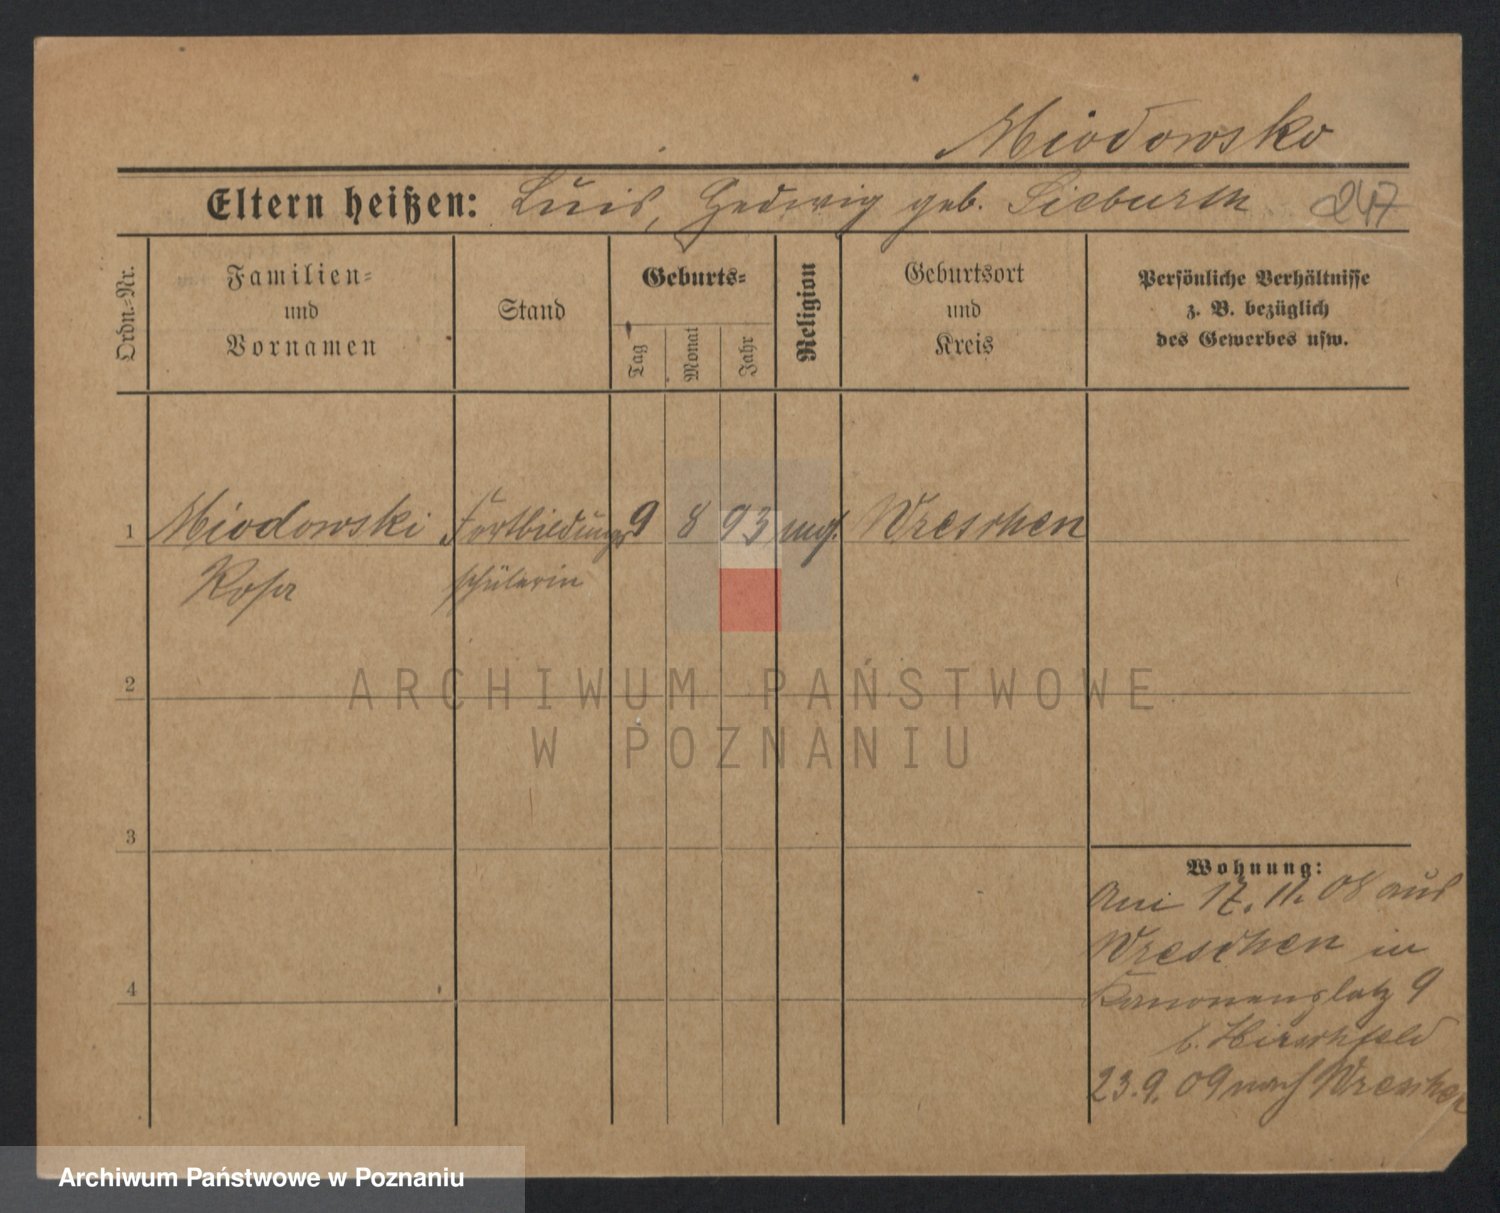 Miodowsko
Eltern heißen: Luis, Hedwig geb. Sieburth 247
Ordn.=Nr.
Familien=
und
Vornamen
Stand
Geburts=
Tag
Monat
Jahr
Religion
Geburtsort
und
Kreis
Persönliche Verhältnisse
z. B. bezüglich
des Gewerbes usw.
1 Miodowski Fortbildungs 9 8 93 Wreschen
Rosa schülerin
2
ARCHIWUM PAŃSTWOWE
W POZNANIU
3
Wohnung:
17. 11. 08 aus
Wreschen in
Kanonenplatz 9
b. Hirschfeld
23. 9. 09 nach Wreschen
4
Archiwum Państwowe w Poznaniu